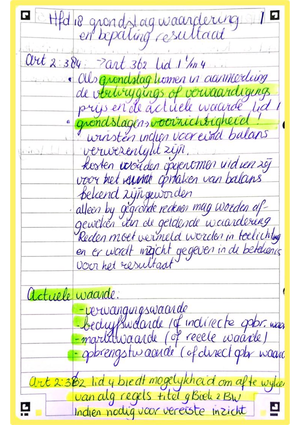 Hfd 18 grondslag waardering 1
en bepaling resultaat
art 2:384 → art 362 lid 1 t/m 4
• Als grondslag komen in aanmerking
de verkrijgings of vervaardigings
prijs en de actuele waarde lid 1
• grondslagen voorzichtigheid!
winsten indien voor eind balans
verwezenlijkt zijn,
kosten worden opgenomen indien zij
voor het opmaken van balans
bekend zijn geworden
• alleen bij gegronde redenen mag worden af-
geweken van de geldende waardering
Reden moet vermeld worden in toelichting
en er wordt inzicht gegeven in de betekenis
voor het resultaat
Actuele waarde:
- vervangingswaarde
- bedrijfswaarde (of indirecte opbr. waarde
- marktwaarde (of reële waarde)
- opbrengstwaarde (of direct opbr. waarde
Art 2:362 lid 4 biedt mogelijkheid om af te wijken
van alg regels titel 9 Boek 2 BW
Indien nodig voor vereiste inzicht